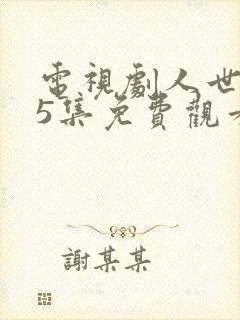 電視劇人世
5集免費觀
謝某某